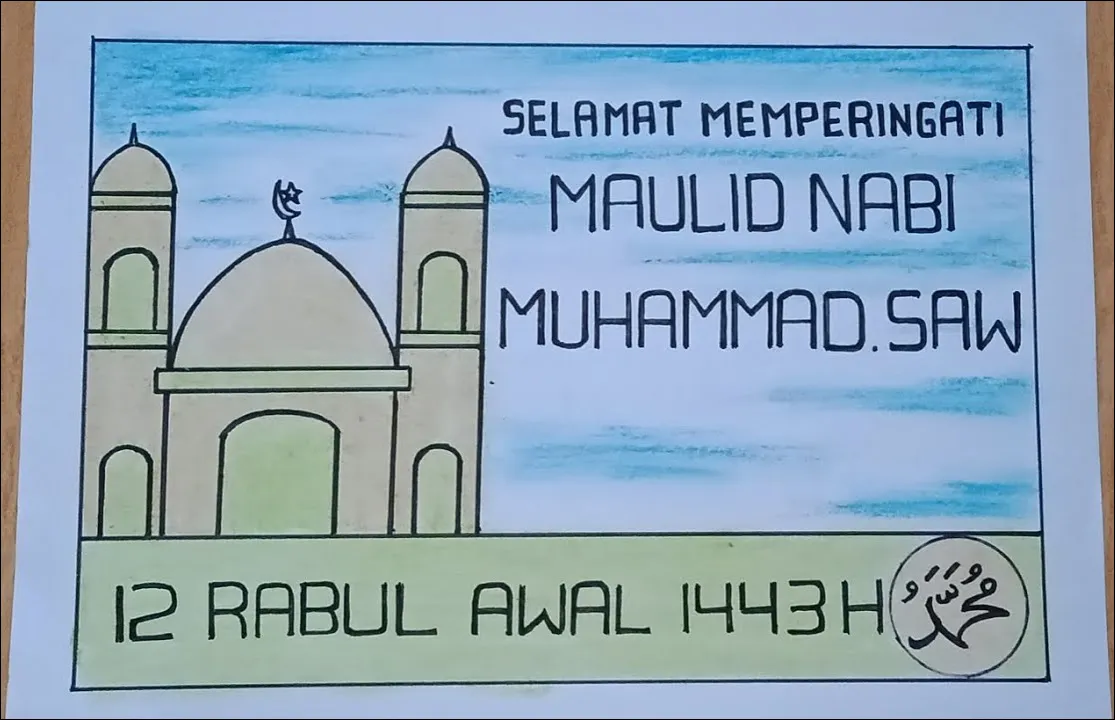 SELAMAT MEMPERINGATI
MAULID NABI
MUHAMMAD. SAW
12 RABUL AWAL 1443 H